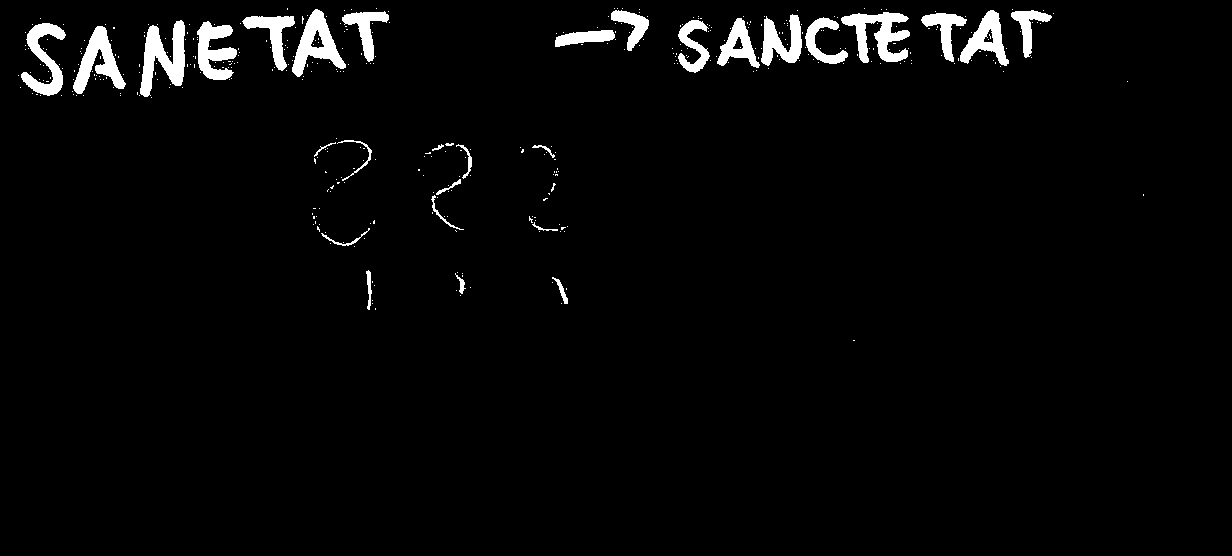 SANETAT → SANCTETAT
???